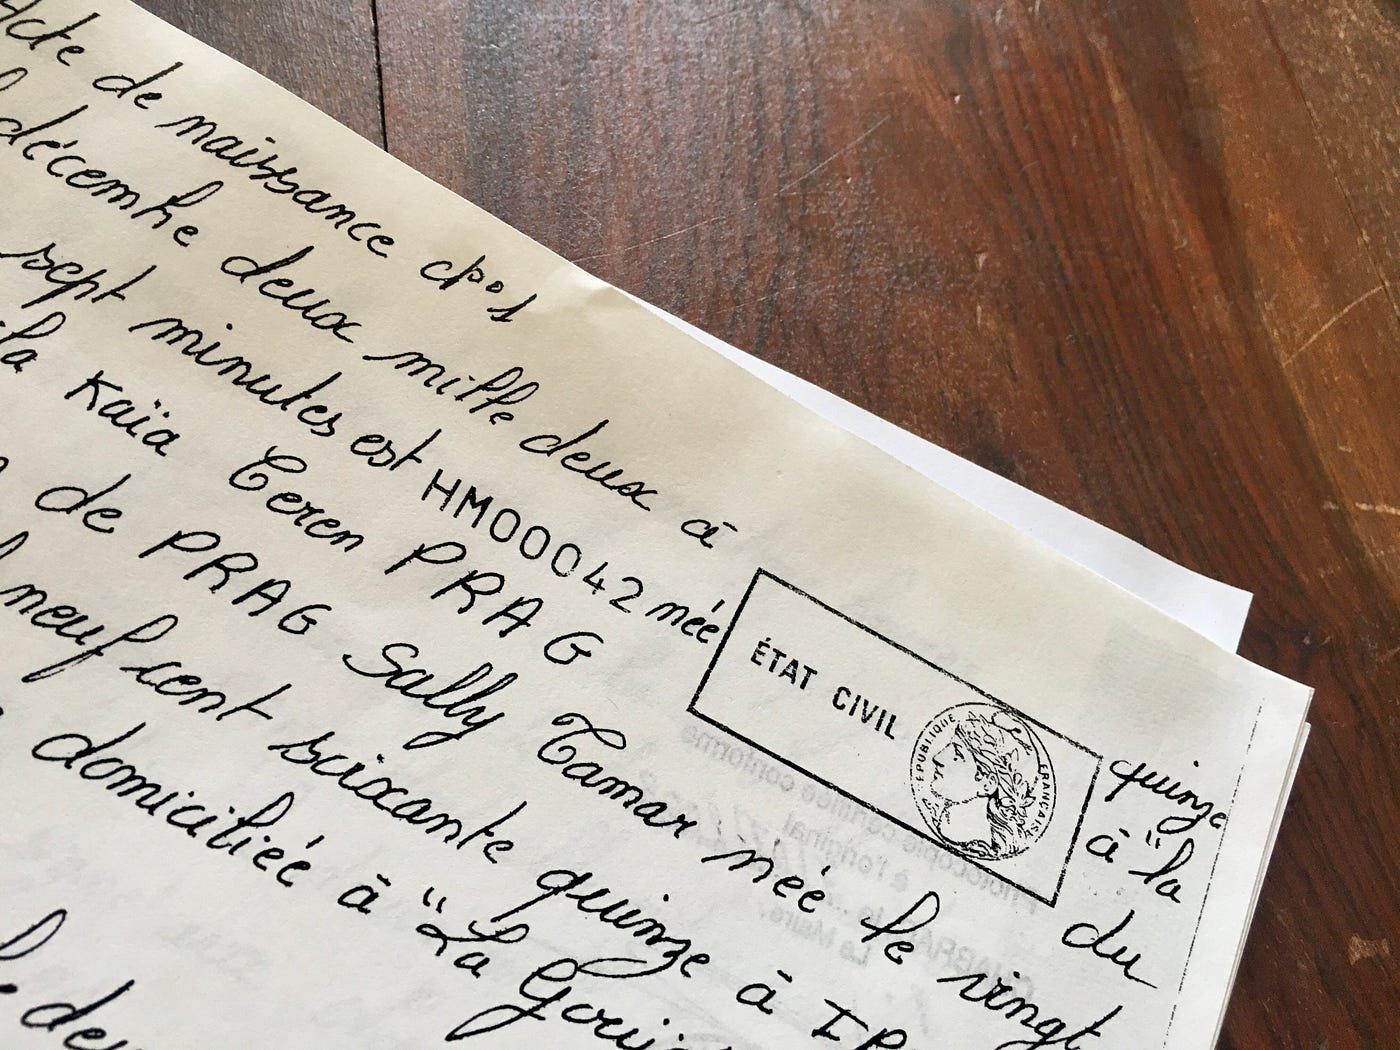 Acte de naissance cp°1
décembre deux mille deux à
sept minutes est HM00042 née quinze
la Kaïa Ceren PRAG à "la
de PRAG Sally Tamar née le vingt du
neuf cent soixante quinze à
domiciliée à "La
ÉTAT CIVIL
RÉPUBLIQUE FRANÇAISE
Photocopie certifiée conforme
à l'original
Le Maire,